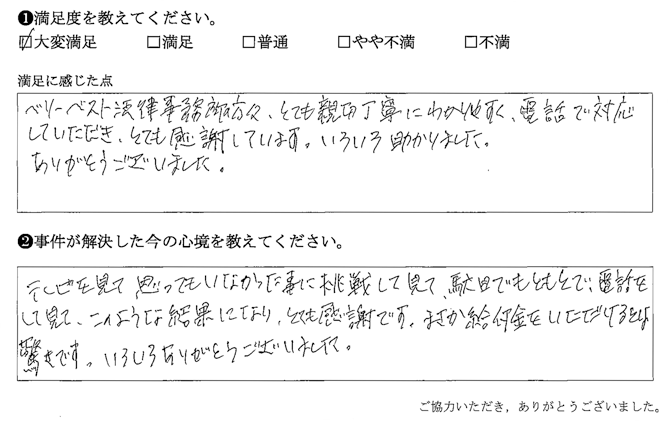 ❶満足度を教えてください。
☑大変満足 □満足 □普通 □やや不満 □不満
満足に感じた点
ベリーベスト法律事務所方々、とても親切丁寧にわかりやすく、電話で対応
していただき、とても感謝しています。いろいろ助かりました。
ありがとうございました。
❷事件が解決した今の心境を教えてください。
テレビを見て思ってもいなかった事に挑戦して見て、駄目でもともとで、電話を
して見て、このような結果になり、とても感謝です。まさか給付金をいただけるとは
驚きです。いろいろありがとうございました。
ご協力いただき，ありがとうございました。